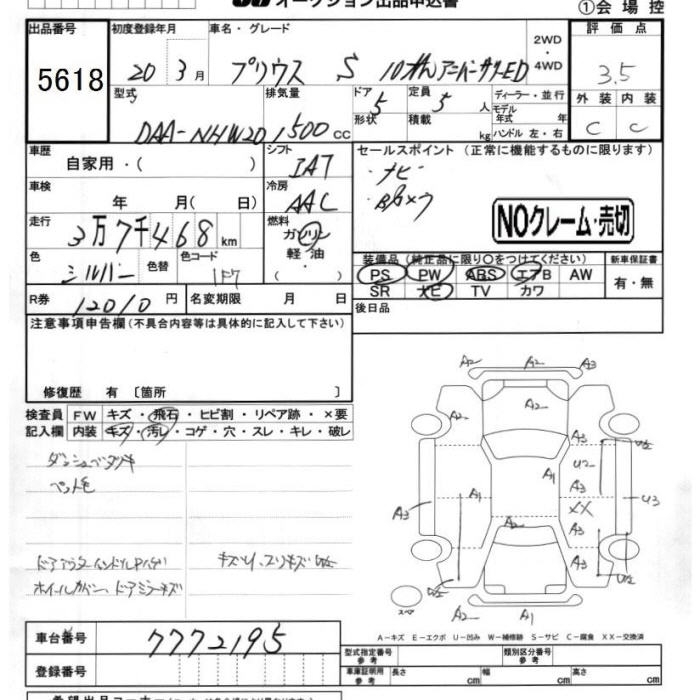 オークション出品申込書
①会場控
出品番号 初度登録年月 車名・グレード 2WD・4WD 評価点
5618 20年3月 プリウス S 10thアニバーサリーED 3.5
型式 排気量 ドア形状 定員 ディーラー・並行 外装 内装
DAA-NHW20 1500cc 5 5人 モデル年式 年 C C
積載 kg ハンドル 左・右
車歴 シフト セールスポイント (正常に機能するものに限ります)
自家用・( ) IAT ナビ
車検 冷房 Bカメラ
年 月( 日) AAC
NOクレーム・売切
走行 燃料
3万7千468km ガソリン・軽油・
色 色替 色コード 装備品 (純正品に限り○をつけてください) 新車保証書
シルバー 1F7 PS PW ABS エアB AW 有・無
SR ナビ TV カワ
R券 12010円 名変期限 月 日 後日品
注意事項申告欄(不具合内容等は具体的に記入して下さい)
修復歴 有 〔箇所 〕
検査員記入欄 FW キズ・飛石・ヒビ割・リペア跡・×要
内装 キズ・汚レ・コゲ・穴・スレ・キレ・破レ
ダッシュベタツキ
ペット毛
ホイールカバー、ドアミラーキズ
A2 A2 A3
A2 A2 A3 U2
A1 A3
A3 A1 A3 U3
XX
A2 A3 A3
A2 A1
スペア
A-キズ E-エクボ U-凹み W-補修跡 S-サビ C-腐食 XX-交換済
車台番号 7772195
型式指定番号 参考 類別区分番号 参考
登録番号 車庫証明用 参考 長さ cm 幅 cm 高さ cm